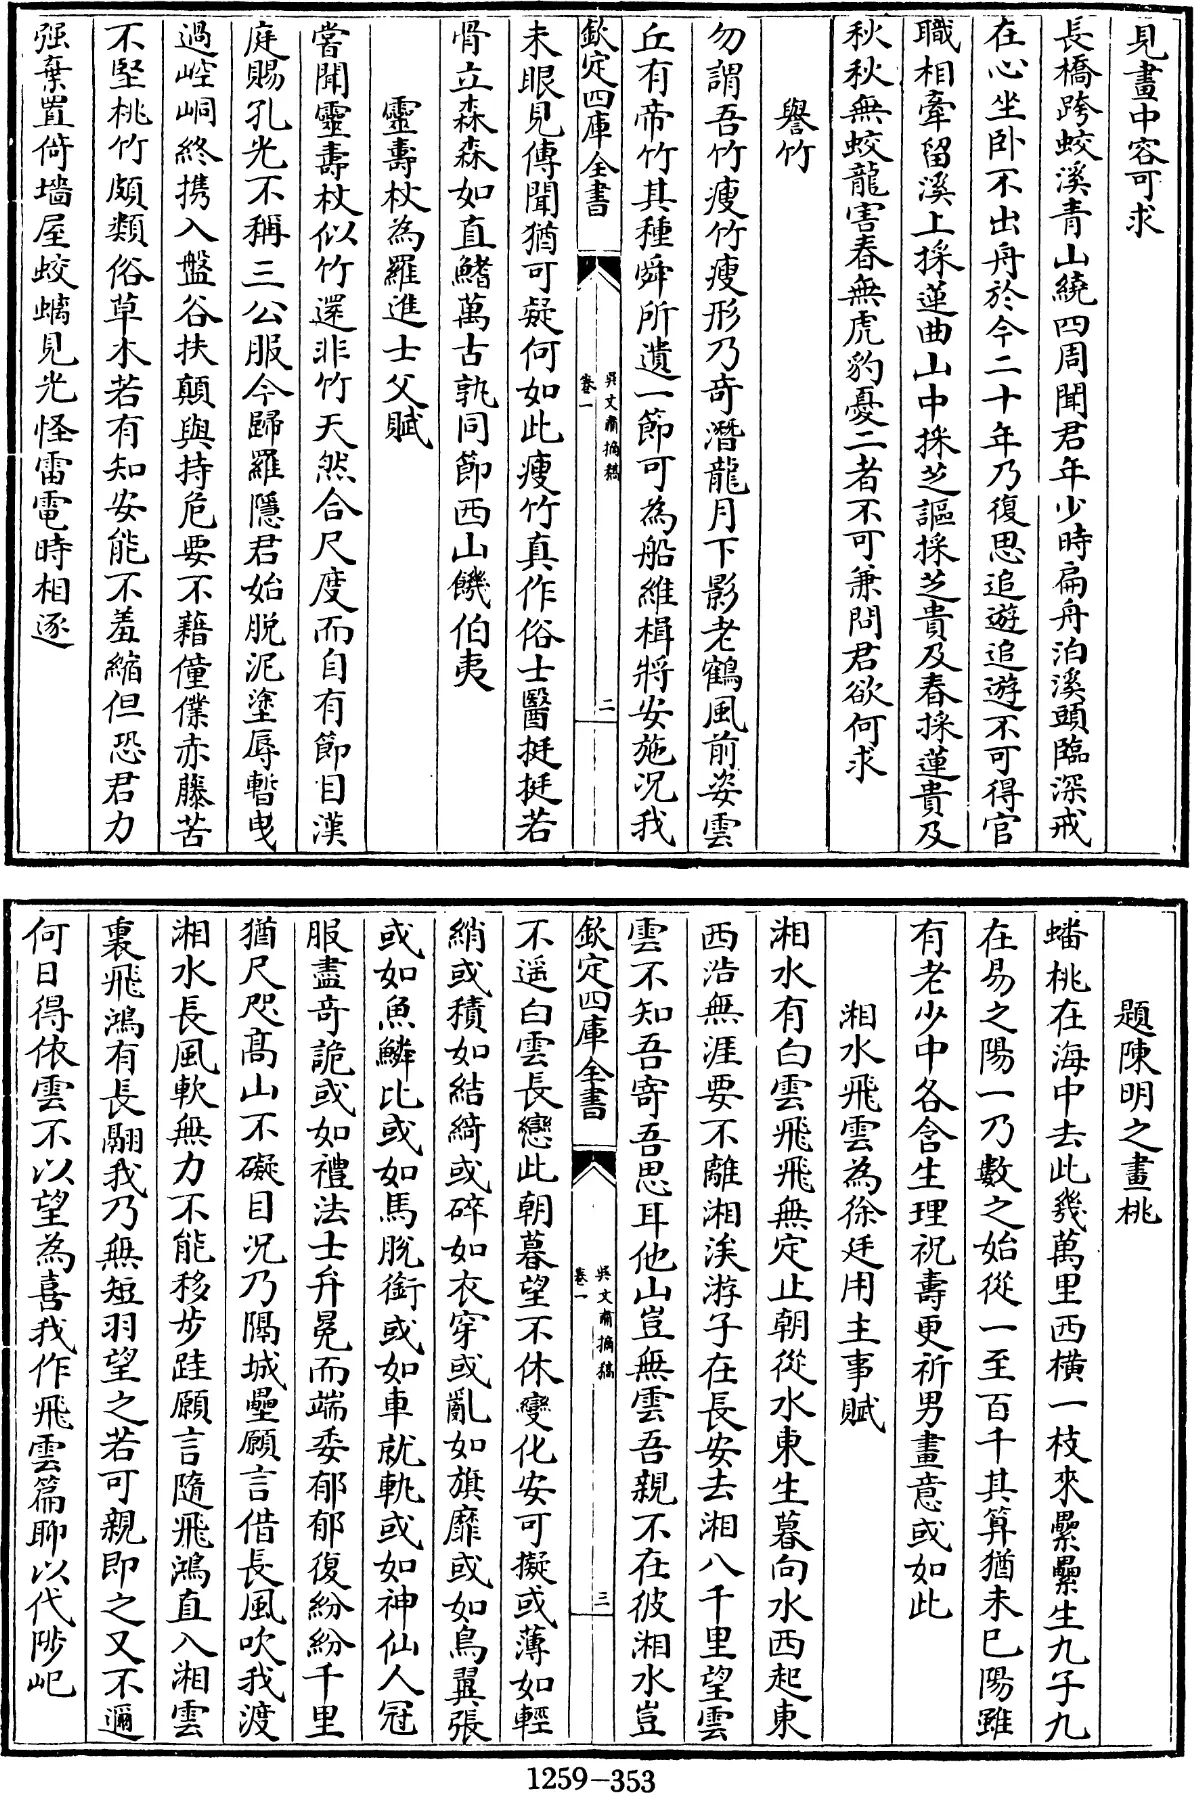 見畫中容可求
長橋跨蛟溪青山繞四周聞君年少時扁舟泊溪頭臨深戒
在心坐卧不出舟於今二十年乃復思追遊追遊不可得官
職相牽留溪上採蓮曲山中採芝謳採芝貴及春採蓮貴及
秋秋無蛟龍害春無虎豹憂二者不可兼問君欲何求
譽竹
勿謂吾竹瘦竹瘦形乃奇潛龍月下影老鶴風前姿雲
丘有帝竹其種舜所遺一節可為船維楫將安施况我
欽定四庫全書
吳文肅摘稿
卷一
二
未眼見傳聞猶可疑何如此瘦竹真作俗士醫挺挺若
骨立森森如直鰭萬古孰同節西山饑伯夷
靈壽杖為羅進士父賦
嘗聞靈壽杖似竹還非竹天然合尺度而自有節目漢
庭賜孔光不稱三公服今歸羅隱君始脱泥塗辱暫曳
過崆峒終携入盤谷扶顛與持危要不藉僮僕赤藤苦
不堅桃竹頗類俗草木若有知安能不羞縮但恐君力
强棄置倚墻屋蛟螭見光怪雷電時相逐
題陳明之畫桃
蟠桃在海中去此幾萬里西横一枝來纍纍生九子九
在易之陽一乃數之始從一至百千其算猶未已陽雖
有老少中各含生理祝壽更祈男畫意或如此
湘水飛雲為徐廷用主事賦
湘水有白雲飛飛無定止朝從水東生暮向水西起東
西浩無涯要不離湘涘游子在長安去湘八千里望雲
雲不知吾寄吾思耳他山豈無雲吾親不在彼湘水豈
欽定四庫全書
吳文肅摘稿
卷一
三
不遥白雲長戀此朝暮望不休變化安可擬或薄如輕
綃或積如結綺或碎如衣穿或亂如旗靡或如鳥翼張
或如魚鱗比或如馬脱銜或如車就軌或如神仙人冠
服盡奇詭或如禮法士弁冕而端委郁郁復紛紛千里
猶尺咫髙山不礙目况乃隔城壘願言借長風吹我渡
湘水長風軟無力不能移步跬願言隨飛鴻直入湘雲
裏飛鴻有長翮我乃無短羽望之若可親即之又不邇
何日得依雲不以望為喜我作飛雲篇聊以代陟屺
1259—353